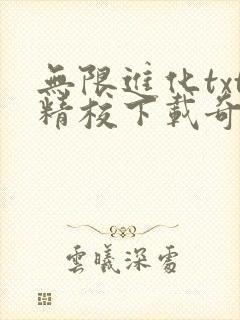 無限進化txt
精校下載奇
雲曦深處